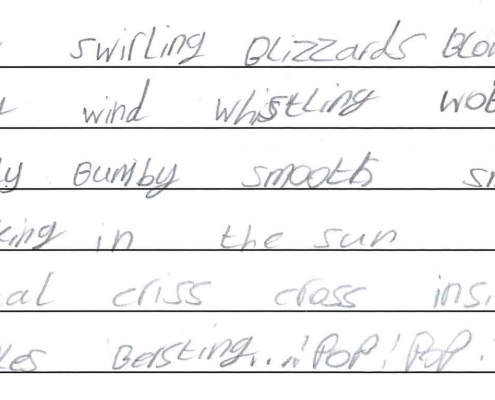 swirling Blizzards Blow
wind whistling wob
Bumby smooth sm
king in the sun
cal criss cross insi
les Bersting...!POP!POP.